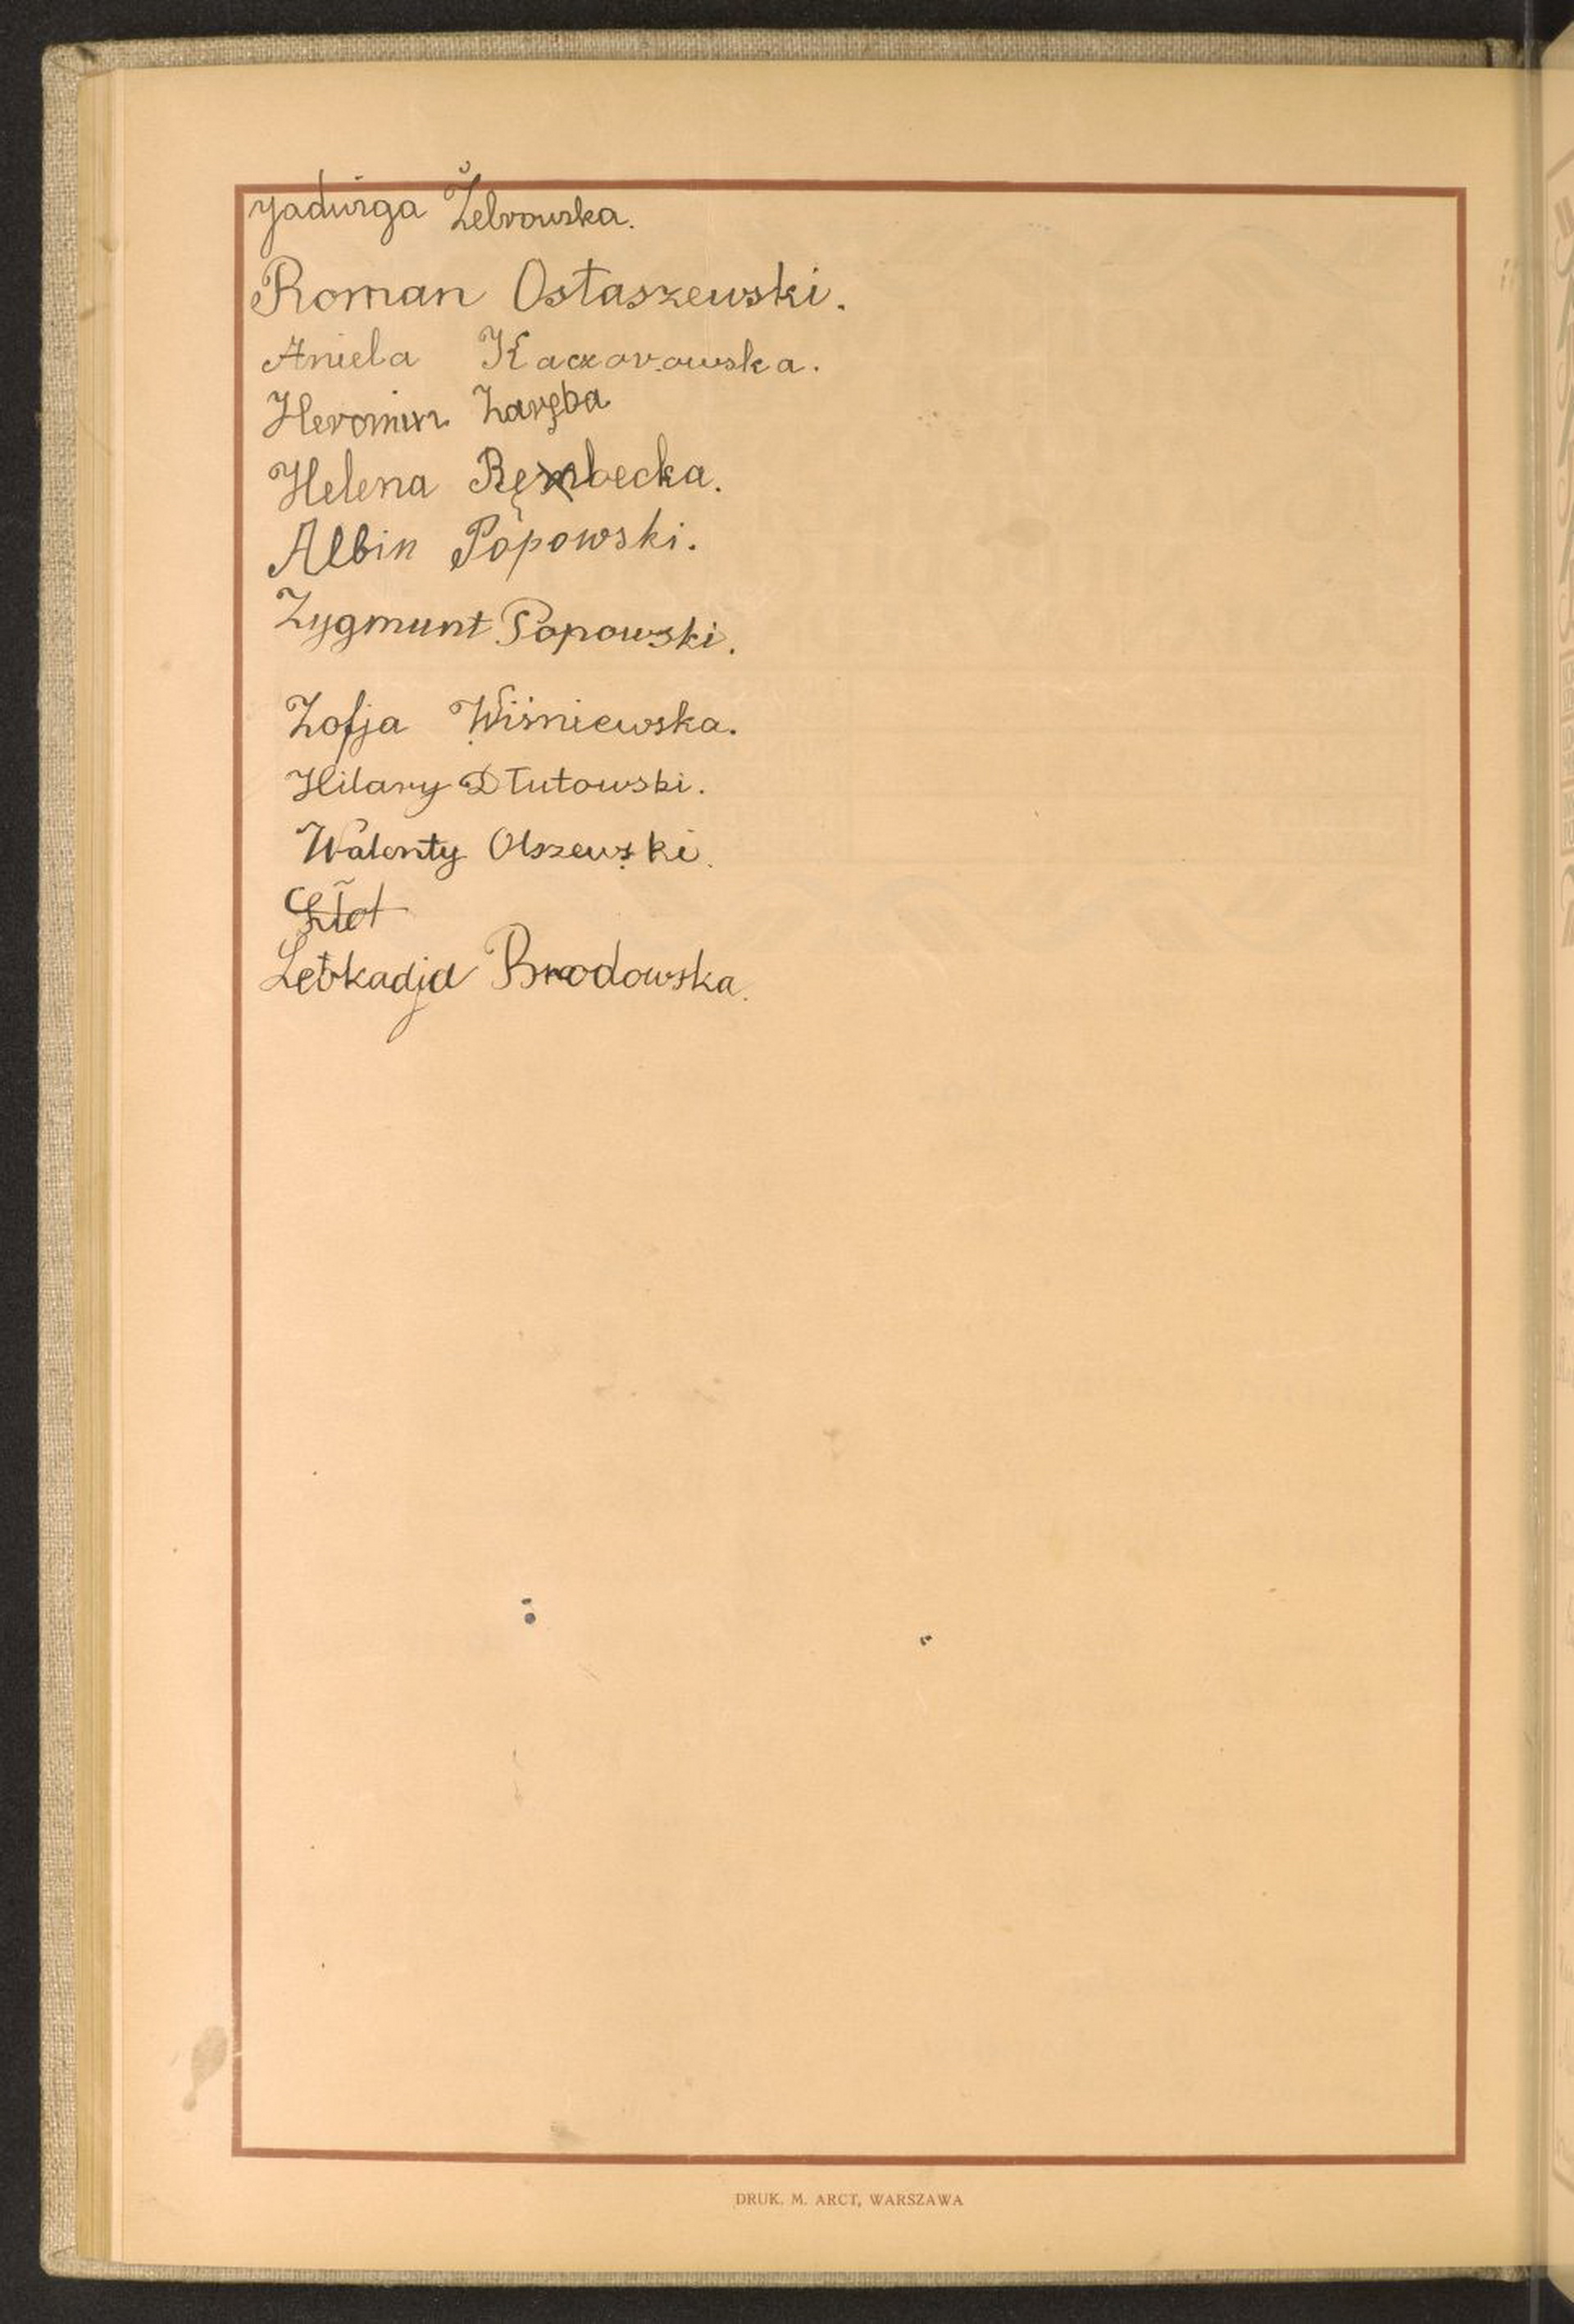 Jadwiga Żebrowska.
Roman Ostaszewski.
Aniela Kaczorowska.
Heronim Zaręba
Helena Rębecka.
Albin Popowski.
Zygmunt Popowski.
Zofja Wiśniewska.
Hilary Dłutowski.
Walenty Olszewski.
Leokadja Brodowska.
DRUK. M. ARCT, WARSZAWA